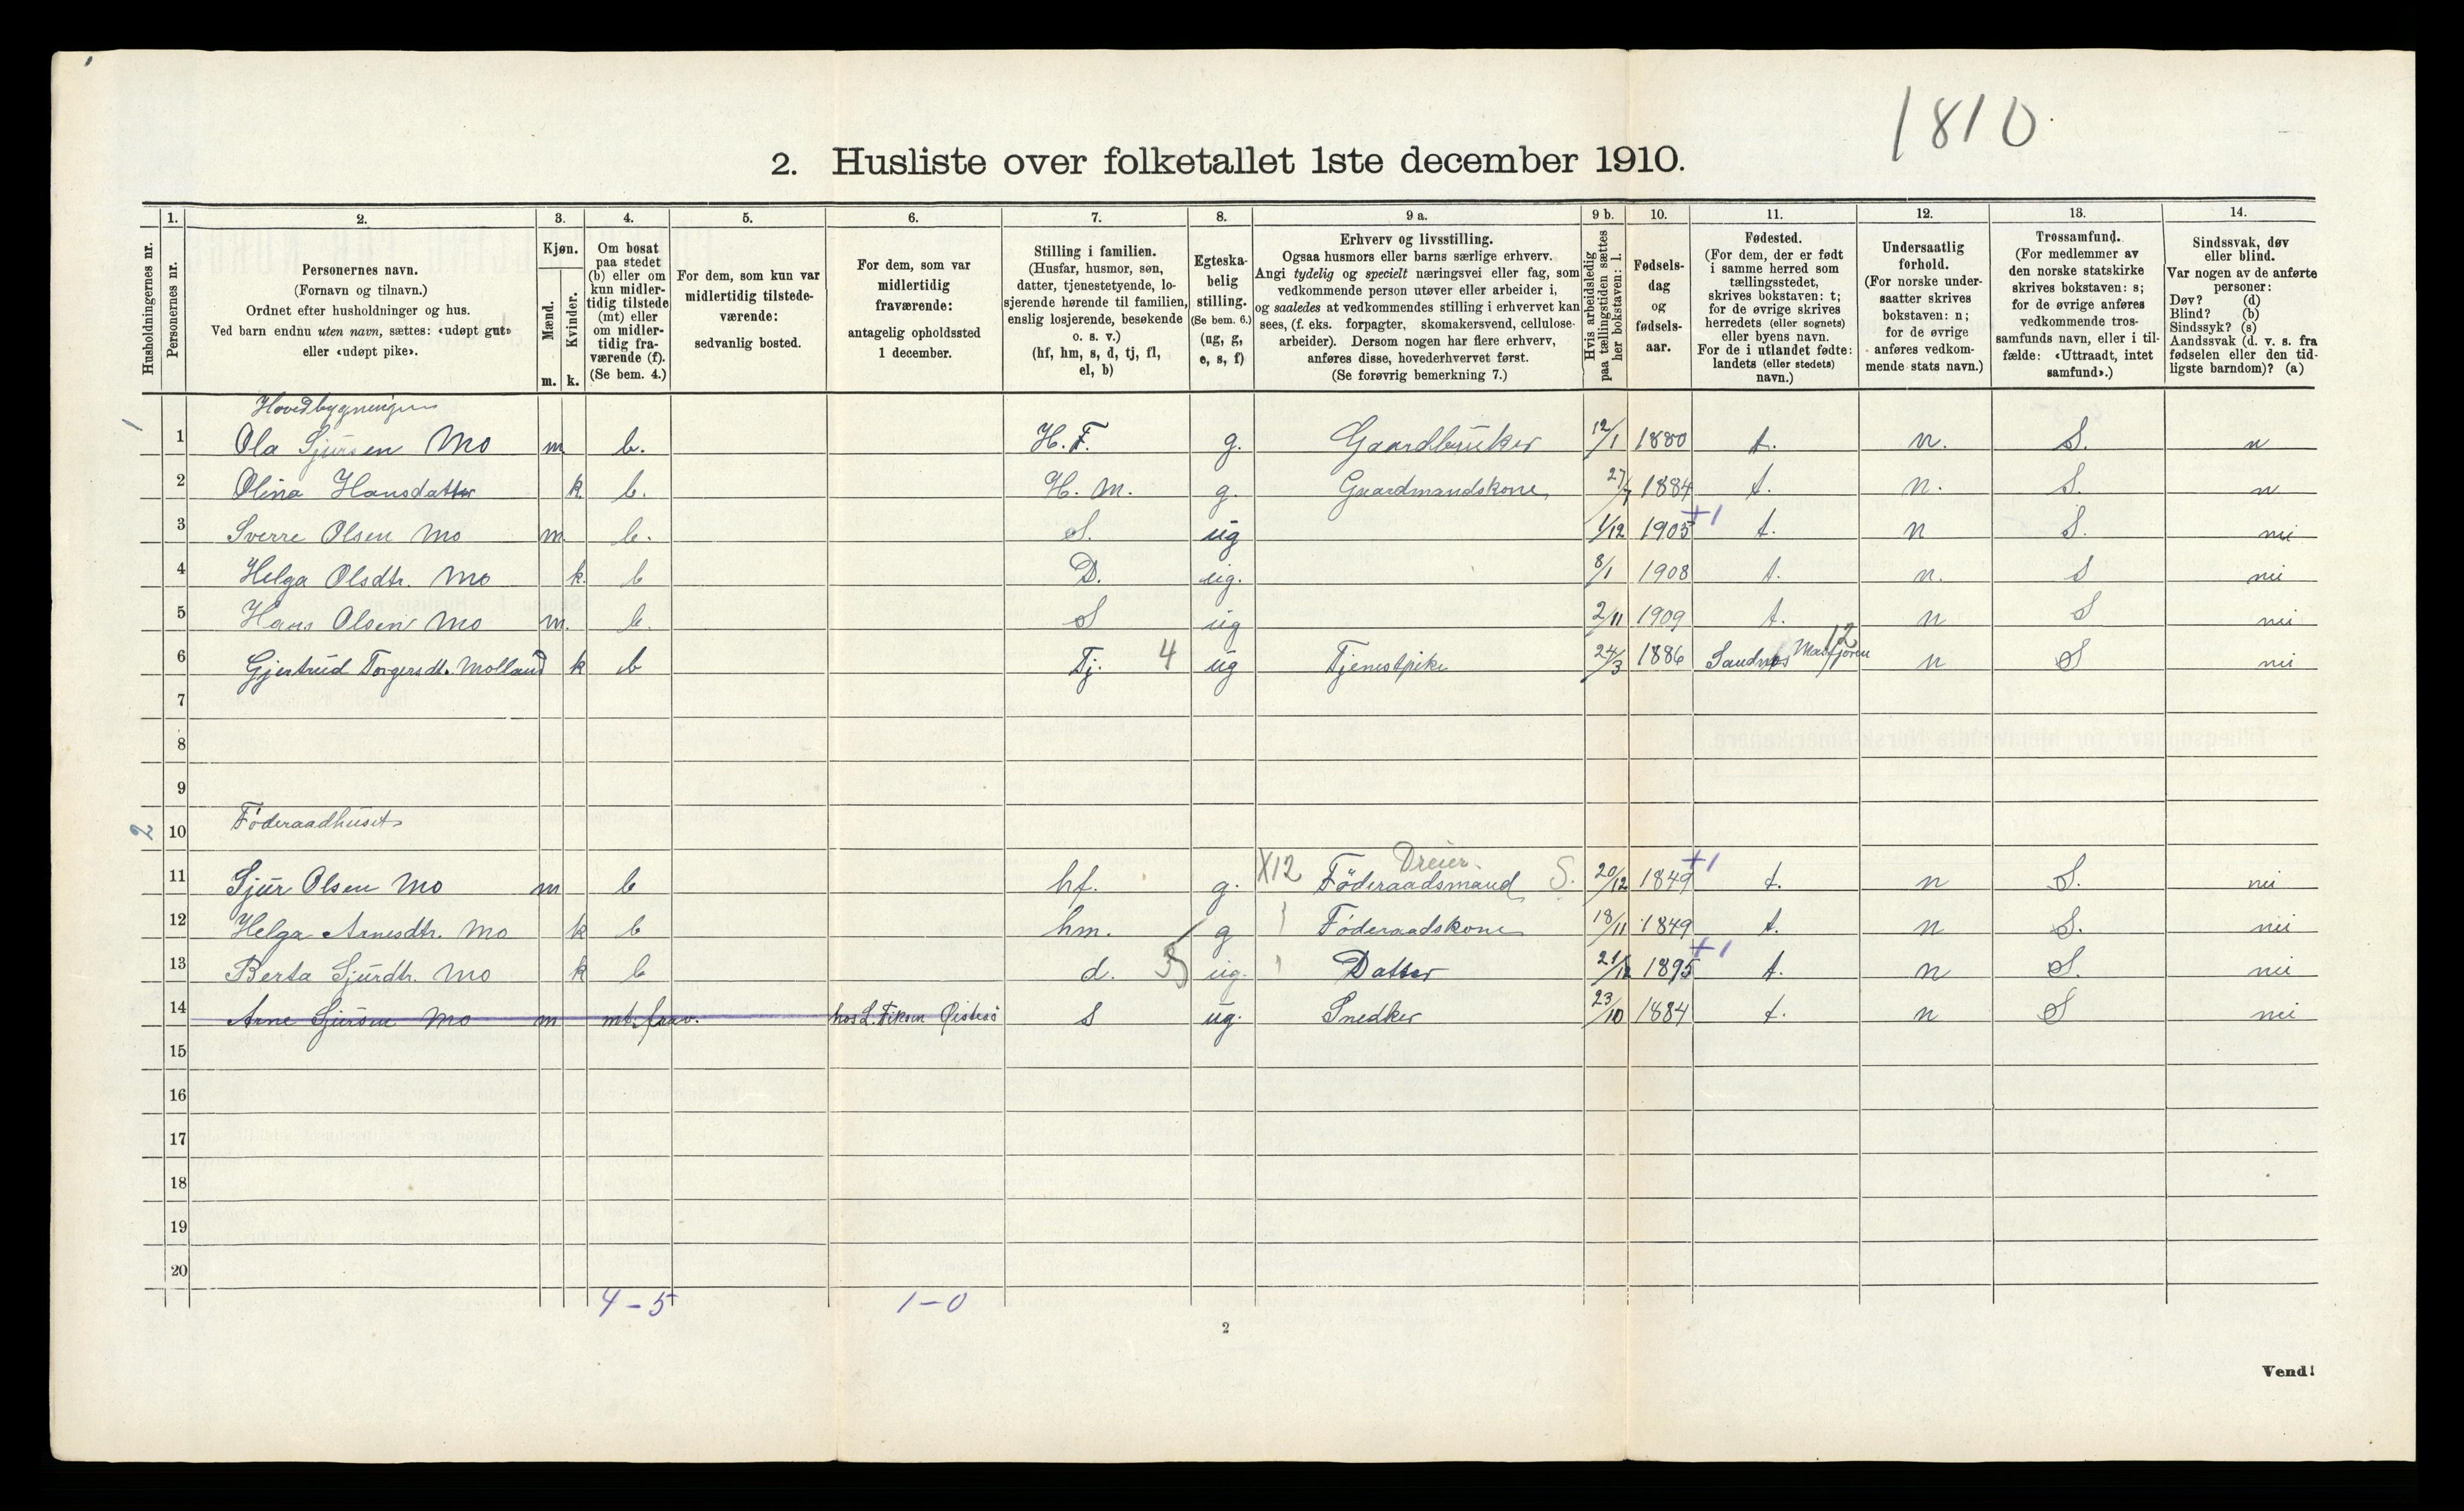 1810
2. Husliste over folketallet 1ste december 1910.
Husholdningernes nr.
1. Personernes nr.
2. Personernes navn.
(Fornavn og tilnavn.)
Ordnet efter husholdninger og hus.
Ved barn endnu uten navn, sættes: «udøpt gut»
eller «udøpt pike».
3. Kjøn.
Mænd. Kvinder.
m. k.
4. Om bosat
paa stedet
(b) eller om
kun midler-
tidig tilstede
(mt) eller
om midler-
tidig fra-
værende (f).
(Se bem. 4.)
5. For dem, som kun var
midlertidig tilstede-
værende:
sedvanlig bosted.
6. For dem, som var
midlertidig
fraværende:
antagelig opholdssted
1 december.
7. Stilling i familien.
(Husfar, husmor, søn,
datter, tjenestetyende, lo-
sjerende hørende til familien,
enslig losjerende, besøkende
o. s. v.)
(hf, hm, s, d, tj, fl,
el, b)
8. Egteska-
belig
stilling.
(Se bem. 6.)
(ug, g,
e, s, f)
9 a. Erhverv og livsstilling.
Ogsaa husmors eller barns særlige erhverv.
Angi tydelig og specielt næringsvei eller fag, som
vedkommende person utøver eller arbeider i,
og saaledes at vedkommendes stilling i erhvervet kan
sees, (f. eks. forpagter, skomakersvend, cellulose-
arbeider). Dersom nogen har flere erhverv,
anføres disse, hovederhvervet først.
(Se forøvrig bemerkning 7.)
9 b. Hvis arbeidsledig
paa tællingstiden sættes
her bokstaven: l.
10. Fødsels-
dag
og
fødsels-
aar.
11. Fødested.
(For dem, der er født
i samme herred som
tællingsstedet,
skrives bokstaven: t;
for de øvrige skrives
herredets (eller sognets)
eller byens navn.
For de i utlandet fødte:
landets (eller stedets)
navn.)
12. Undersaatlig
forhold.
(For norske under-
saatter skrives
bokstaven: n;
for de øvrige
anføres vedkom-
mende stats navn.)
13. Trossamfund.
(For medlemmer av
den norske statskirke
skrives bokstaven: s;
for de øvrige anføres
vedkommende tros-
samfunds navn, eller i til-
fælde: «Uttraadt, intet
samfund».)
14. Sindssvak, døv
eller blind.
Var nogen av de anførte
personer:
Døv? (d)
Blind? (b)
Sindssyk? (s)
Aandssvak (d. v. s. fra
fødselen eller den tid-
ligste barndom)? (a)
Hovedbygningen
1 1 Ola Sjursen Mo m b. H. F. g. Gaardbruker 12/1 1880 t. n. S. n
2 Olina Hansdatter k. b. H. M. g. Gaardmandskone 27/7 1884 t. n. S. n
3 Sverre Olsen Mo m. b. S. ug 1/12 1905 +1 t. n S. nei
4 Helga Olsdtr. Mo k. b D. ug. 8/1 1908 t. n. S nei
5 Hans Olsen Mo m. b. S ug 2/11 1909 t. n S nei
6 Gjertrud Torgersdt. Molland k b Tj. 4 ug Tjenestpike 24/3 1886 Sandnes Masfjoren 12 n S nei
7
8
9
2 10 Föderaadhuset
11 Sjur Olsen Mo m b hf. g. X12 Dreier. Föderaadsmand S. 20/12 1849 +1 t. n S. nei
12 Helga Arnesdtr. Mo k b hm. g Föderaadskone 18/11 1849 t. n S. nei
13 Berta Sjurdtr. Mo k b d. 5 ug. Datter 21/12 1895 +1 t. n S. nei
14 Arne Sjursen Mo m mt. frav. hos L. Fiksen Øistesö s ug. Snedker 23/10 1884 t. n S nei
15
16
17
18
19
20
4 - 5 1 - 0
2
Vend!